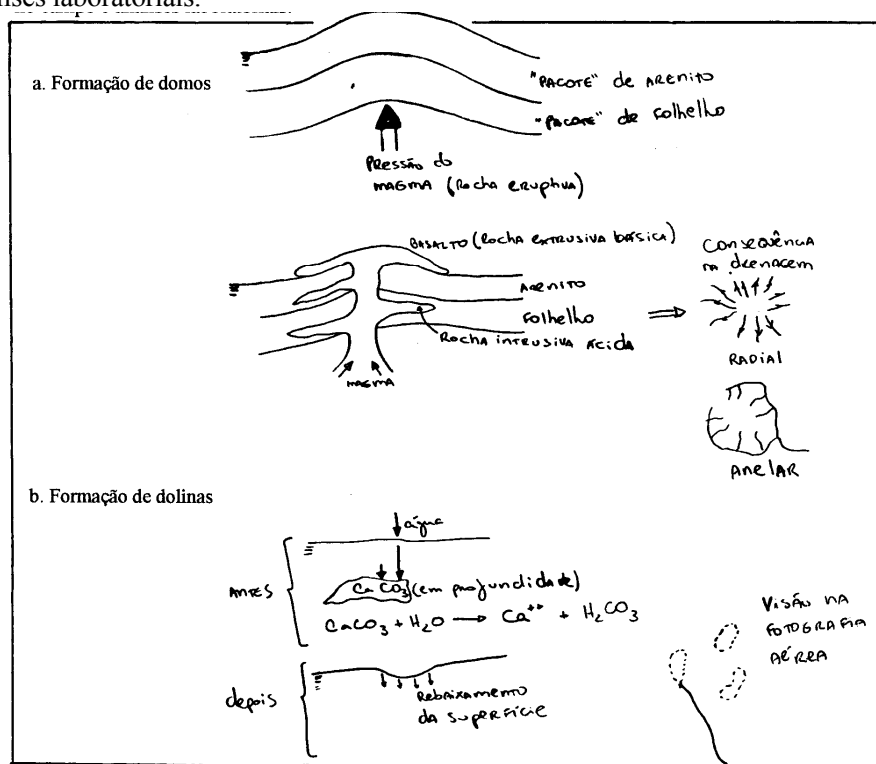 ises laboratoriais.
a. Formação de domos
"PACOTE" de ARENITO
"PACOTE" de Folhelho
PRESSÃO do
MAGMA (Rocha ERUPTIVA)
BASALTO (Rocha EXTRUSIVA BÁSICA)
ARENITO
Folhelho
ROCHA INTRUSIVA ÁCIDA
MAGMA
CONSEQUÊNCIA
NA DRENAGEM
RADIAL
ANELAR
b. Formação de dolinas
ANTES
água
CaCO₃ (em profundidade)
CaCO₃ + H₂O → Ca⁺⁺ + H₂CO₃
depois
Rebaixamento
da SUPERFÍCIE
VISÃO NA
FOTOGRAFIA
AÉREA